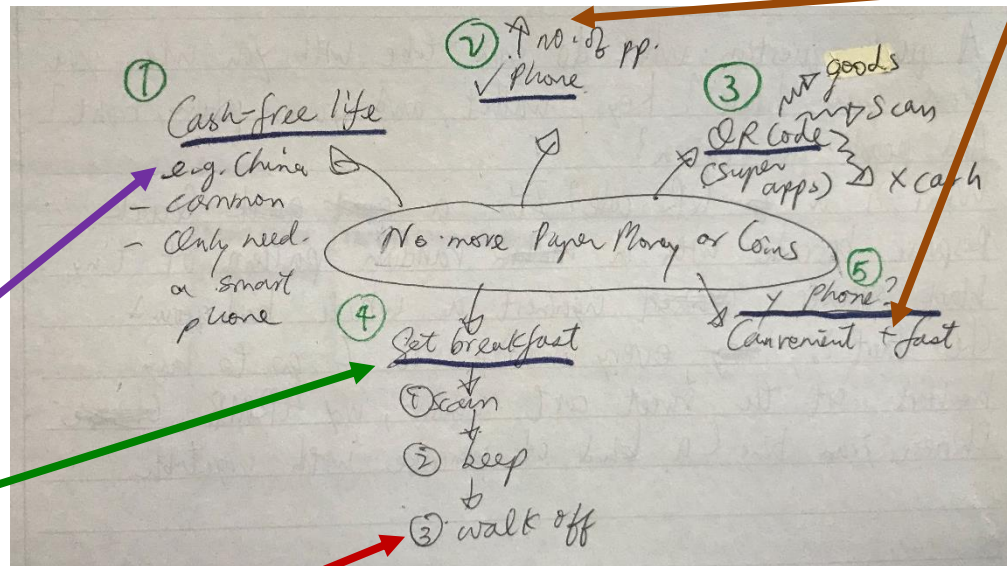 ①
Cash-free life
e.g. China
- common
- Only need
a smart
phone
②
↑ no. of pp.
✓ Phone
③
QR Code
(super
apps)
goods
scan
x cash
No more Paper Money or Coins
④
Get breakfast
① scan
② beep
③ walk off
⑤
y phone?
Convenient + fast